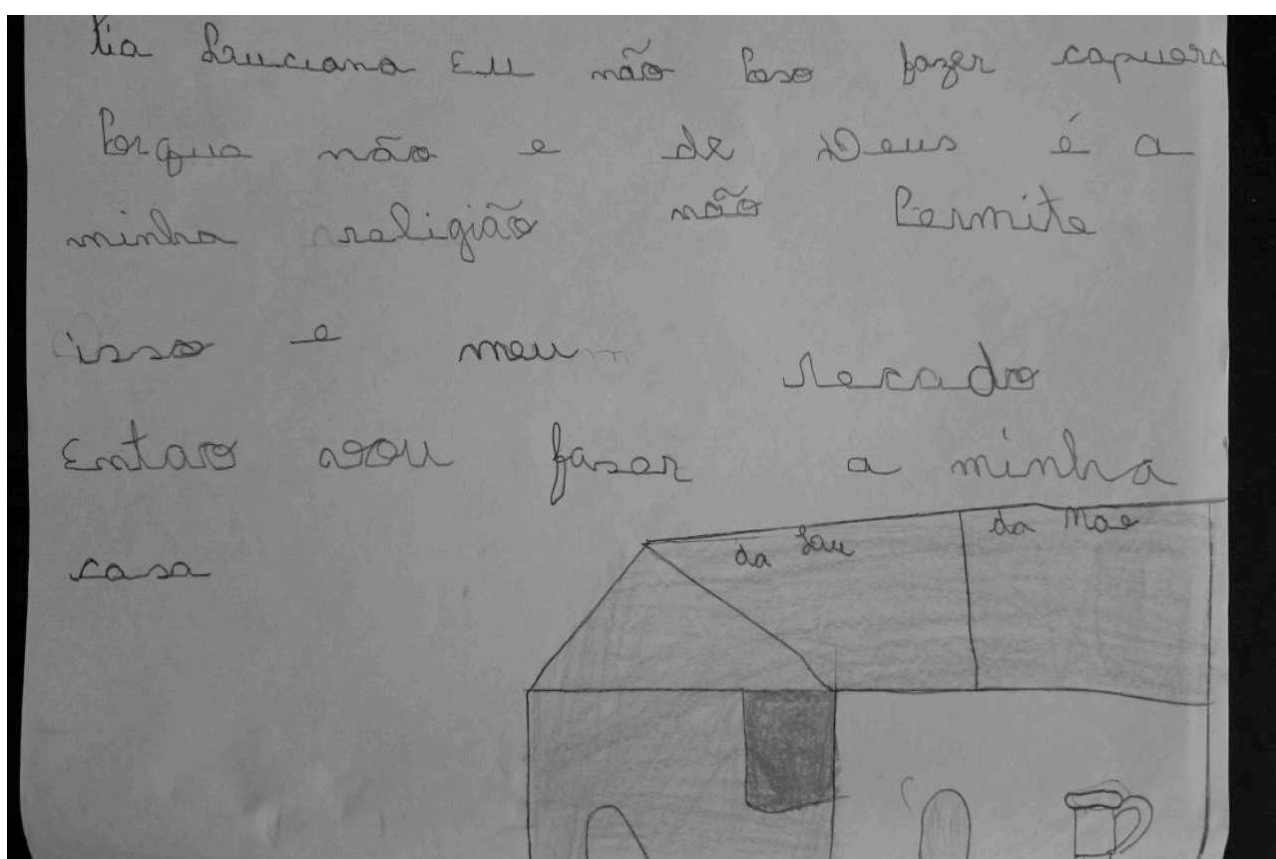 tia Luciana Eu não Poso fazer capuera
Porque não e de Deus é a
minha religião não Permite
isso e meu recado
Entao vou faser a minha
casa
da Lau
da Mae